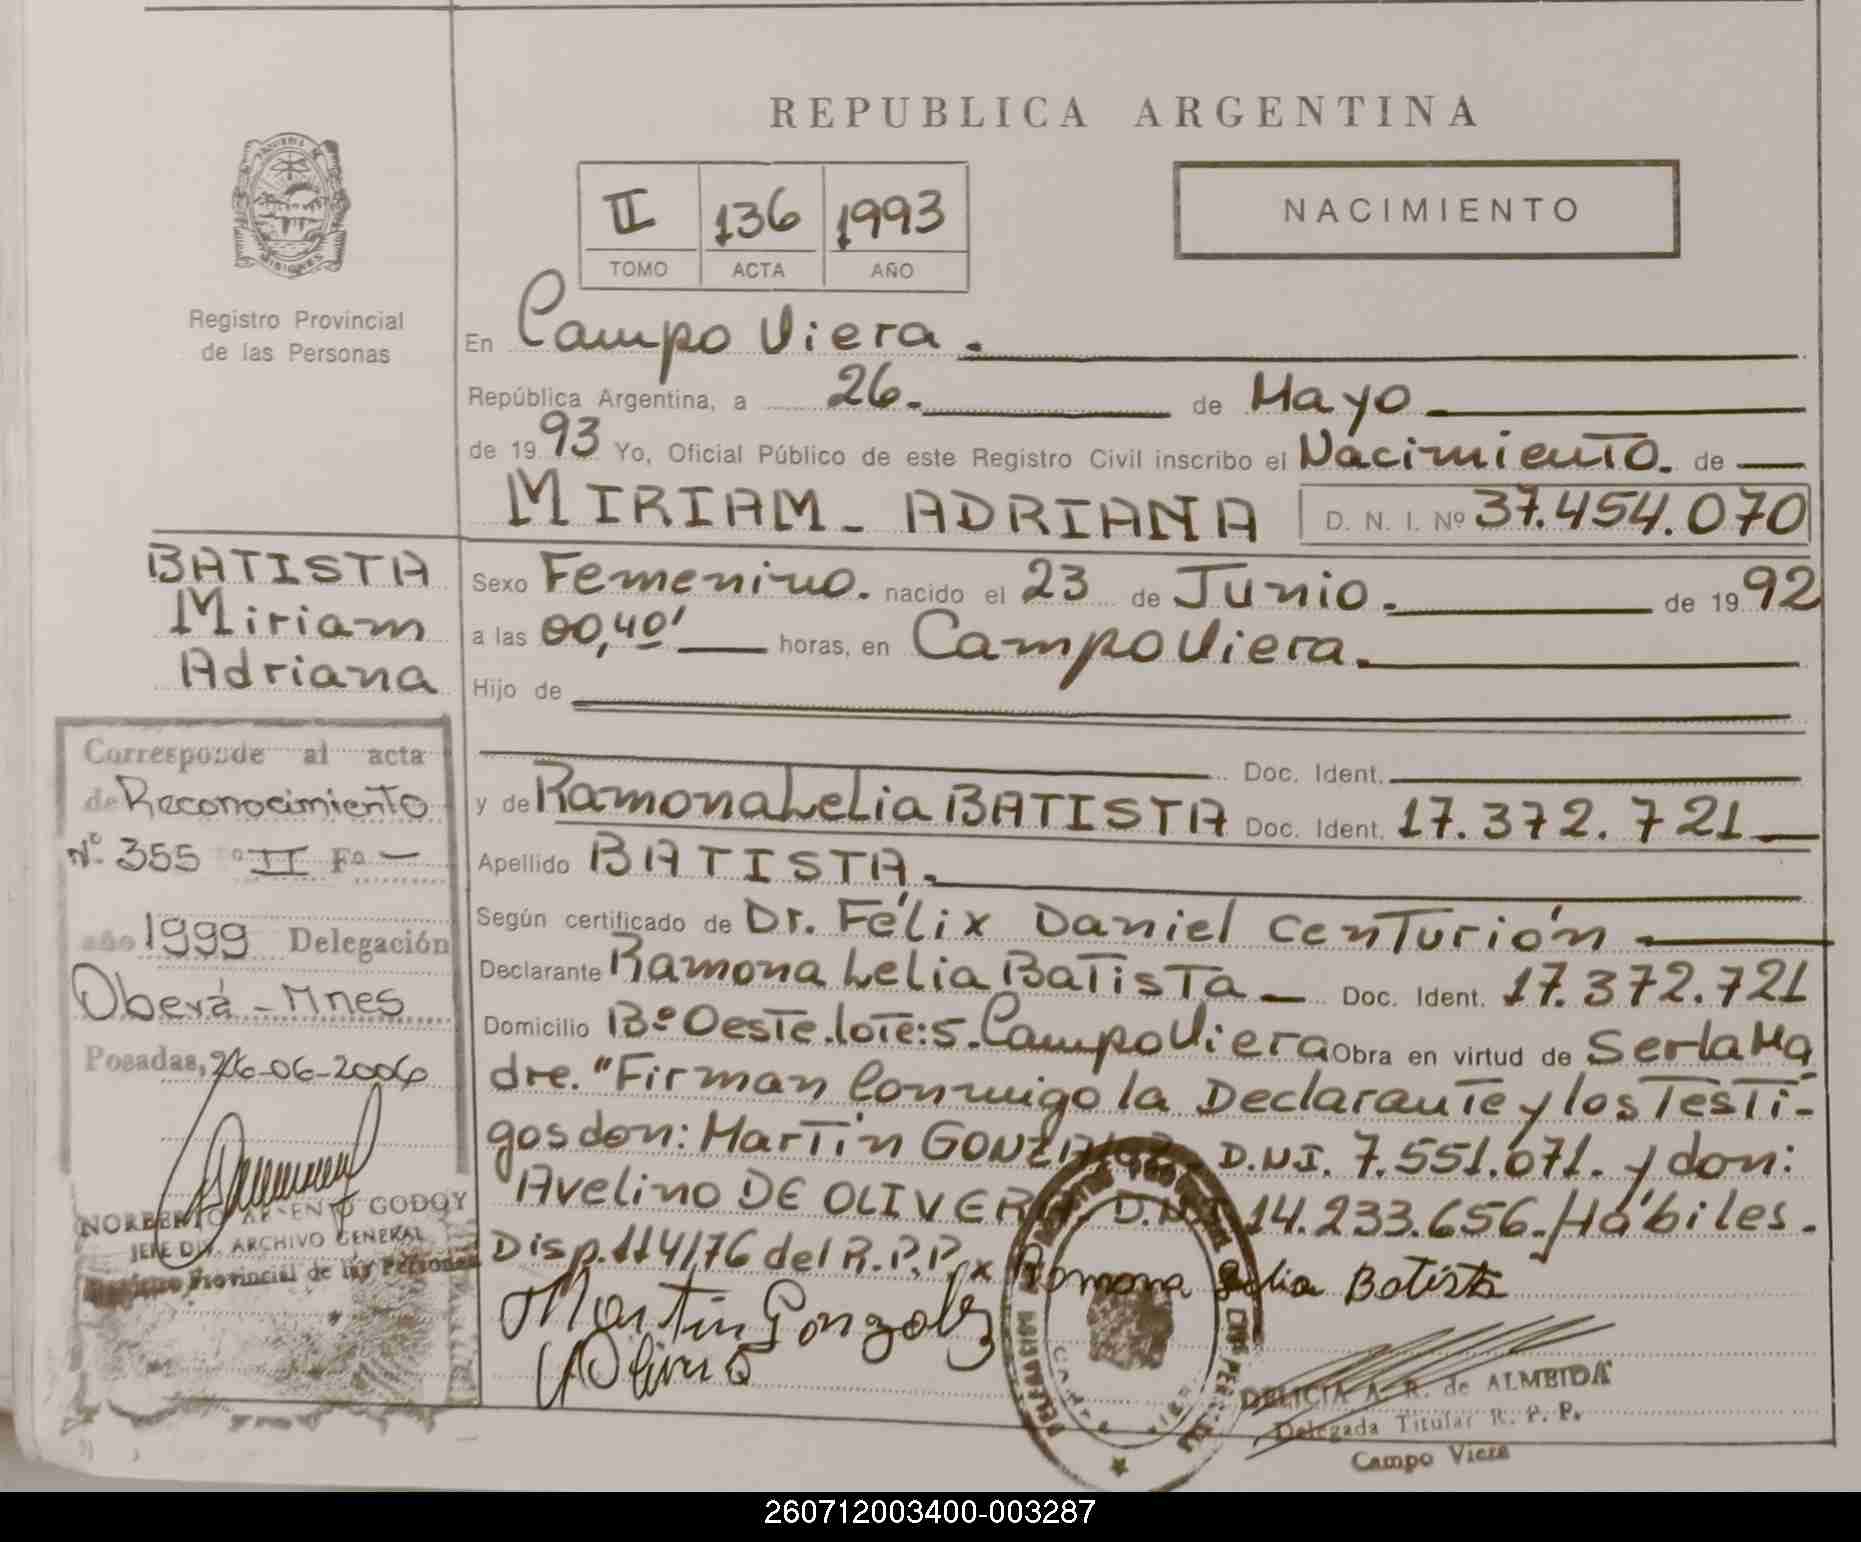 REPUBLICA ARGENTINA
II 136 1993
TOMO ACTA AÑO
NACIMIENTO
MISIONES
Registro Provincial
de las Personas
En Campo Viera.
República Argentina, a 26. de Mayo
de 1993 Yo, Oficial Público de este Registro Civil inscribo el Nacimiento. de
MIRIAM - ADRIANA D. N. I. Nº 37.454.070
BATISTA
Miriam
Adriana
Sexo Femenino. nacido el 23 de Junio. de 1992
a las 00,40' horas, en Campo Viera.
Hijo de
Doc. Ident.
y de Ramona Lelia BATISTA Doc. Ident. 17.372.721
Apellido BATISTA.
Según certificado de Dr. Félix Daniel Centurión
Declarante Ramona Lelia Batista Doc. Ident. 17.372.721
Domicilio Bº Oeste. lote: 5. Campo Viera Obra en virtud de Ser la Ma
dre. "Firman Conmigo la Declarante y los Testi-
gos don: Martín GONZALEZ. D.N.I. 7.551.071. y don:
Avelino DE OLIVERA D.N.I. 14.233.656./Hábiles.
Disp. 114/76 del R.P.P. x Ramona Lelia Batista
Martin Gonzalez
Corresponde al acta
de Reconocimiento
Nº 355 º II Fº -
año 1999 Delegación
Oberá - Mnes
Posadas, 26-06-2006
NORBERTO ARSENIO GODOY
JEFE DIV. ARCHIVO GENERAL
Registro Provincial de las Personas
DELICIA A. R. de ALMEIDA
Delegada Titular R. P. P.
Campo Viera
260712003400-003287